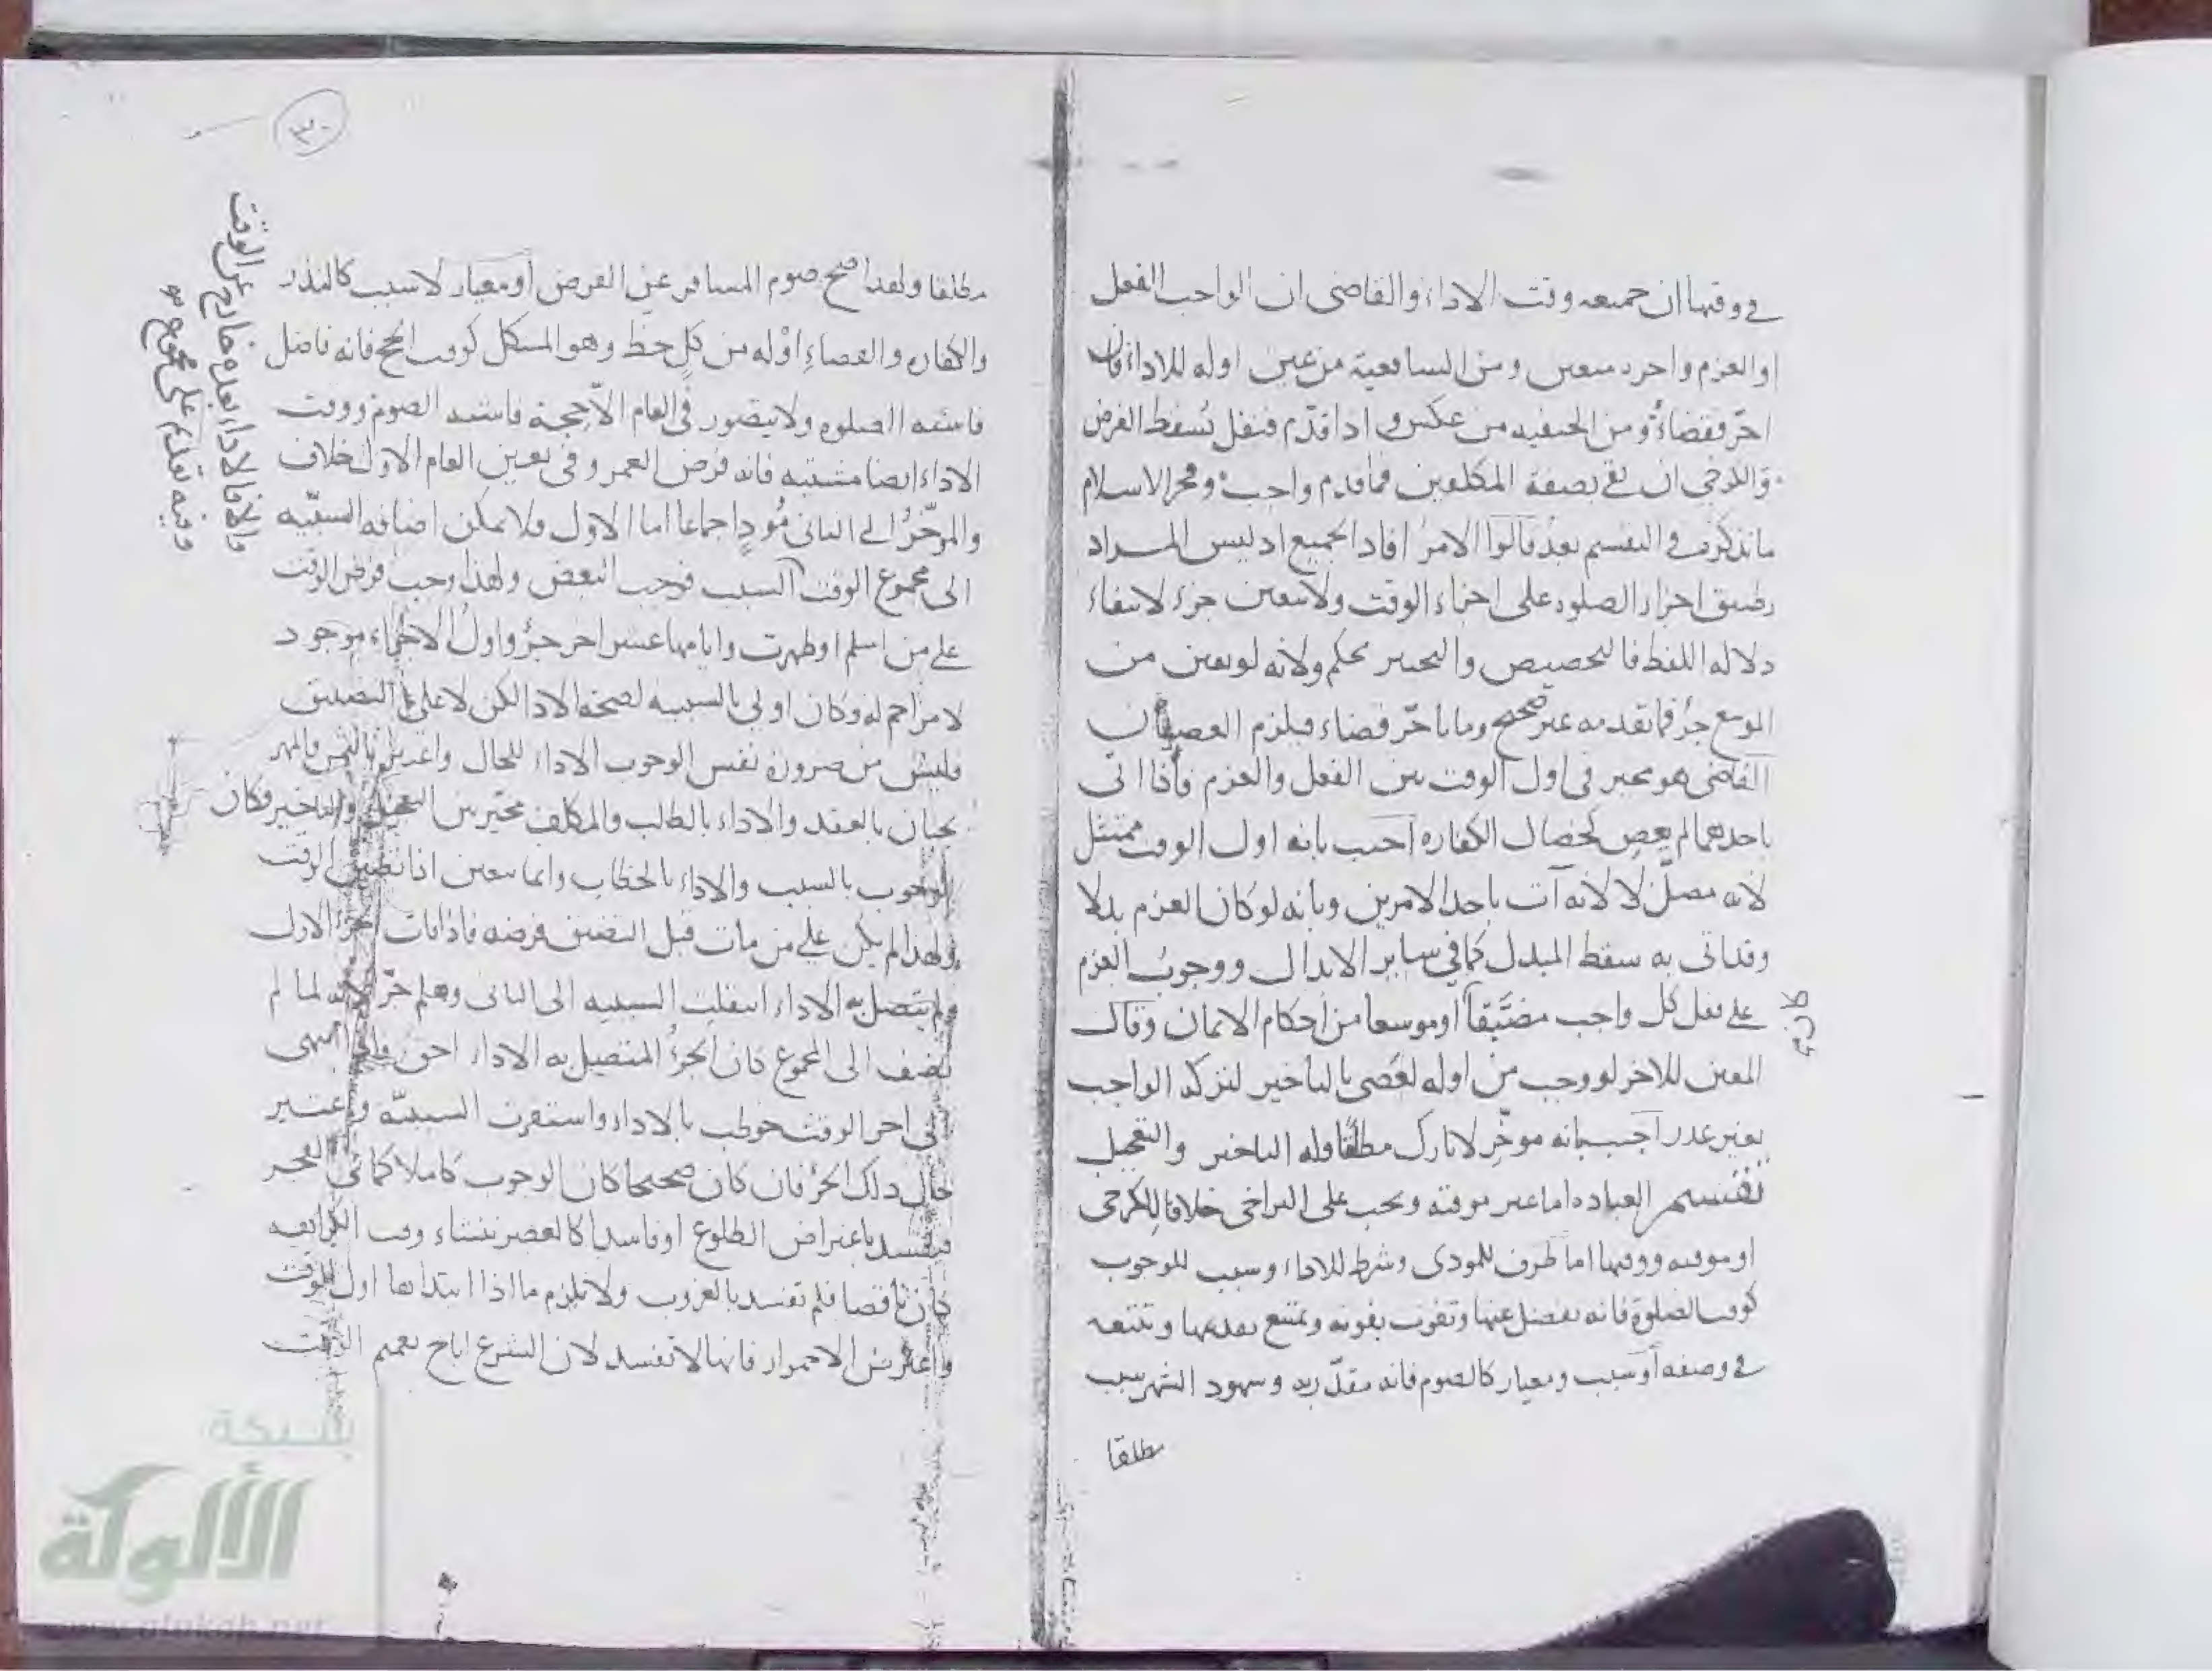 في وقتها ان جميعه وقت الاداء والقاضي ان الواجب الفعل
او العزم واخره متعين ومن الشافعية من عين اوله للاداء فان
اخّر فقضاءٌ ومن الحنفيه من عكس واذا قدّم فنفل يُسقط الفرض
والكرخي ان بقي بصفة المكلفين فما قدم واجبٌ وفخر الاسلام
ما نذكره في التقسيم بعدُ قالوا الامر افاد الجميع اذ ليس المراد
تطبيق اجزاء الصلوه على اجزاء الوقت ولا تعيين جزء لانتفاء
دلاله اللفظ فالتخصيص والتخيير تحكم ولانه لو تعين من
الموسع جزءٌ فما تقدمه غير صحيح وما تاخّر قضاء فيلزم العصيان
القاضي هو مخير في اول الوقت بين الفعل والعزم فاذا اتى
باحدهما لم يعصِ كخصال الكفاره اجيب بانه اول الوقت ممتثل
لانه مصلٍّ لا لانه آت باحد الامرين وبانه لو كان العزم بدلا
وقد اتى به سقط المبدل كما في سائر الابدال ووجوب العزم
على فعل كل واجب مضيّقاً او موسعا من احكام الايمان وقال
كان من
المعين للاخر لو وجب من اوله لعصى بالتاخير لتركه الواجب
بغير عذر اجيب بانه موخّر لا تارك مطلقا وله التاخير والتعجيل
تقسيم العباده اما غير موقته ويجب على التراخي خلافا للكرخي
او موقته ووقتها اما ظرف للمودى وشرط للاداء وسبب للوجوب
كوقت الصلوة فانه يفضل عنها وتفوت بفوته ويمتنع تقديمها وتتبعه
في وصفه او سبب ومعيار كالصوم فانه مقدّر به وشهود الشهر سبب
مطلقا
٣٠
مطلقا ولهذا صح صوم المسافر عن الفرض او معيار لا سبب كالنذر
والكفاره والقضاءِ او له من كلٍ حظ وهو المشكل كوقت الحج فانه فاضل
فاشبه الصلوه ولا يتصور في العام الا حجة فاشبه الصوم ووقت
الاداء ايضا مشتبه فانه فرض العمر وفي تعيين العام الاول خلاف
والموخّرُ الى الثاني مُودٍ اجماعا اما الاول فلا يمكن اضافه السببيّه
الى مجموع الوقت السبب فوجب البعض ولهذا وجب فرض الوقت
على من اسلم او طهرت وايامها عشر اخر جزءٍ واول الاجزاء موجود
لا مزاحم له وكان اولى بالسببيه لصحة الادا لكن لا على التضييق
فليس من ضرورة نفس الوجوب الاداء للحال واعتبر بالثمن والمهر
يجبان بالعقد والاداء بالطلب والمكلف مخيّر بين التعجيل والتاخير فكان
الوجوب بالسبب والاداء بالخطاب وانما يتعين اذا تضيق الوقت
ولهذا لم يكن على من مات قبل التضيق فرضه فاذا فات الجزء الاول
ولم يتصل به الاداء انتقلت السببيه الى الثاني وهلم جرّا لانه لما لم
تضف الى المجموع كان الجزءُ المتصل به الاداء احق وان انتهى
الى اخر الوقت خوطب بالاداء واستقرت السببيّه واعتبر
حال ذلك الجزء فان كان صحيحا كان الوجوب كاملا كما في الفجر
فيفسد باعتراض الطلوع او فاسدا كالعصر تنشاء وقت الكراهه
كان ناقصا فلم تفسد بالغروب ولا يلزم ما اذا ابتداها اول الوقت
واعترض الاحمرار فانها لا تفسد لان الشرع اباح تعميم الوقت
والا فالاداء بعده خارج عن الوقت
وفيه تقدم على مجموع
شبكة
الألوكة
www.alukah.net